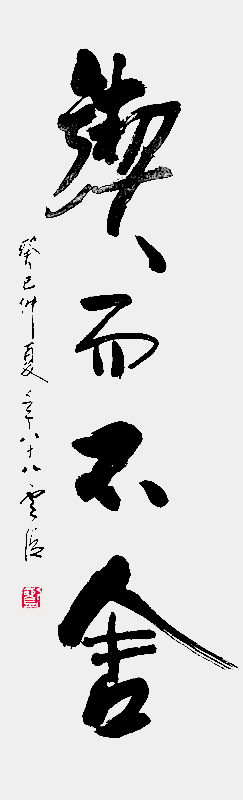 鍥而不舍
癸巳仲夏年八十八雲